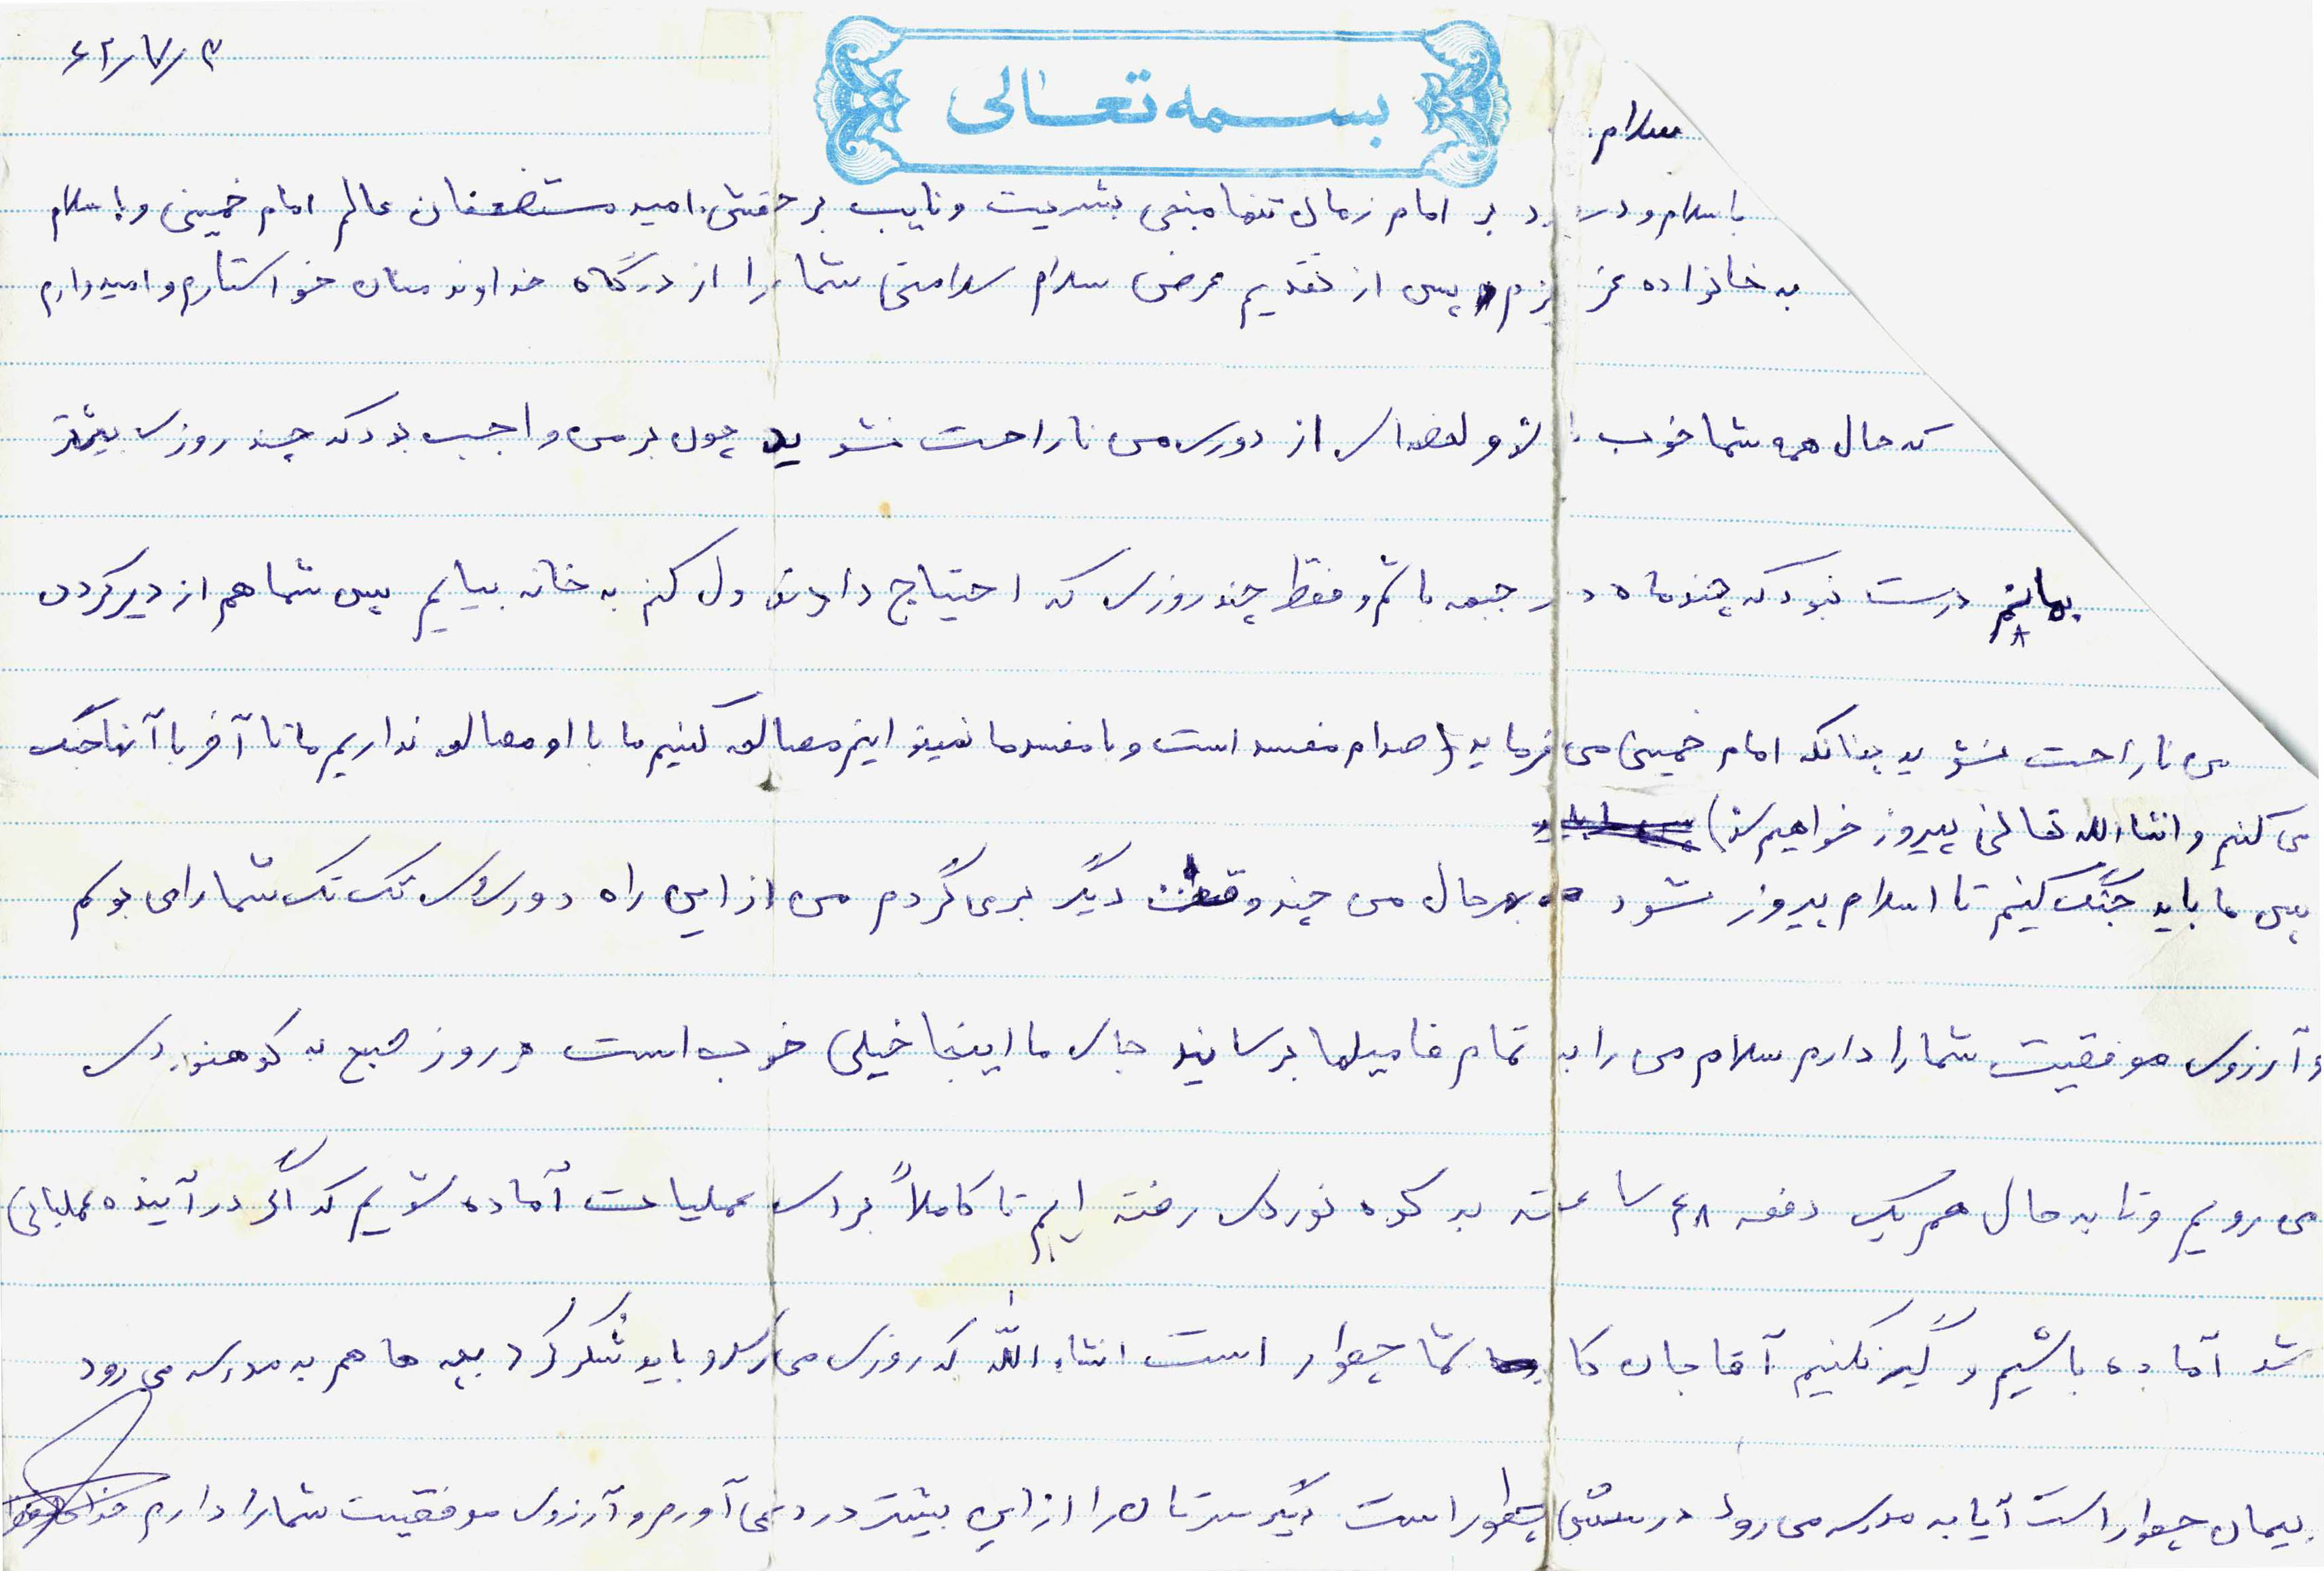 ۶۲/۷/۳
بسمه تعالی
سلام.
با سلام و درود بر امام زمان تنها منجی بشریت و نایب بر حقش. امید مستضعفان عالم امام خمینی و با سلام
به خانواده عزیزم پس از تقدیم عرض سلام سلامتی شما را از درگاه خداوند منان خواستارم و امیدوارم
که حال همه شما خوب از دوری من ناراحت نشوید چون بر من واجب بود که چند روزی بیشتر
بمانم درست نبود که چند ماه در جبهه باشم و فقط چند روزی که احتیاج دارند ول کنم به خانه بیایم پس شما هم از دیر کردن
من ناراحت نشوید چنانکه امام خمینی می فرماید (صدام مفسد است و با مفسد ما نمیتوانیم مصالحه کنیم ما با او مصالحه نداریم ما تا آخر با آنها جنگ
می کنیم و انشاءالله تعالی پیروز خواهیم شد)
پس ما باید جنگ کنیم تا اسلام پیروز شود بهرحال من چند وقت دیگر برمی گردم من از این راه دور روی تک تک شما را می بوسم
و آرزوی موفقیت شما را دارم سلام من را به تمام فامیلها برسانید جای ما اینجا خیلی خوب است هر روز صبح به کوهنوردی
می رویم و تا به حال هم یک دفعه ۴۸ ساعته به کوه نوردی رفته ایم تا کاملاً برای عملیات آماده شویم که اگر در آینده عملیاتی
شد آماده باشیم و گیر نکنیم آقا جان کار شما چطور است انشاءالله که روزی می رسد و باید شکر کرد بچه ها هم به مدرسه می رود
پیمان چطور است آیا به مدرسه می رود درسش چطور است دیگر سرتان را از این بیشتر درد نمی آورم و آرزوی موفقیت شما را دارم خداحافظ